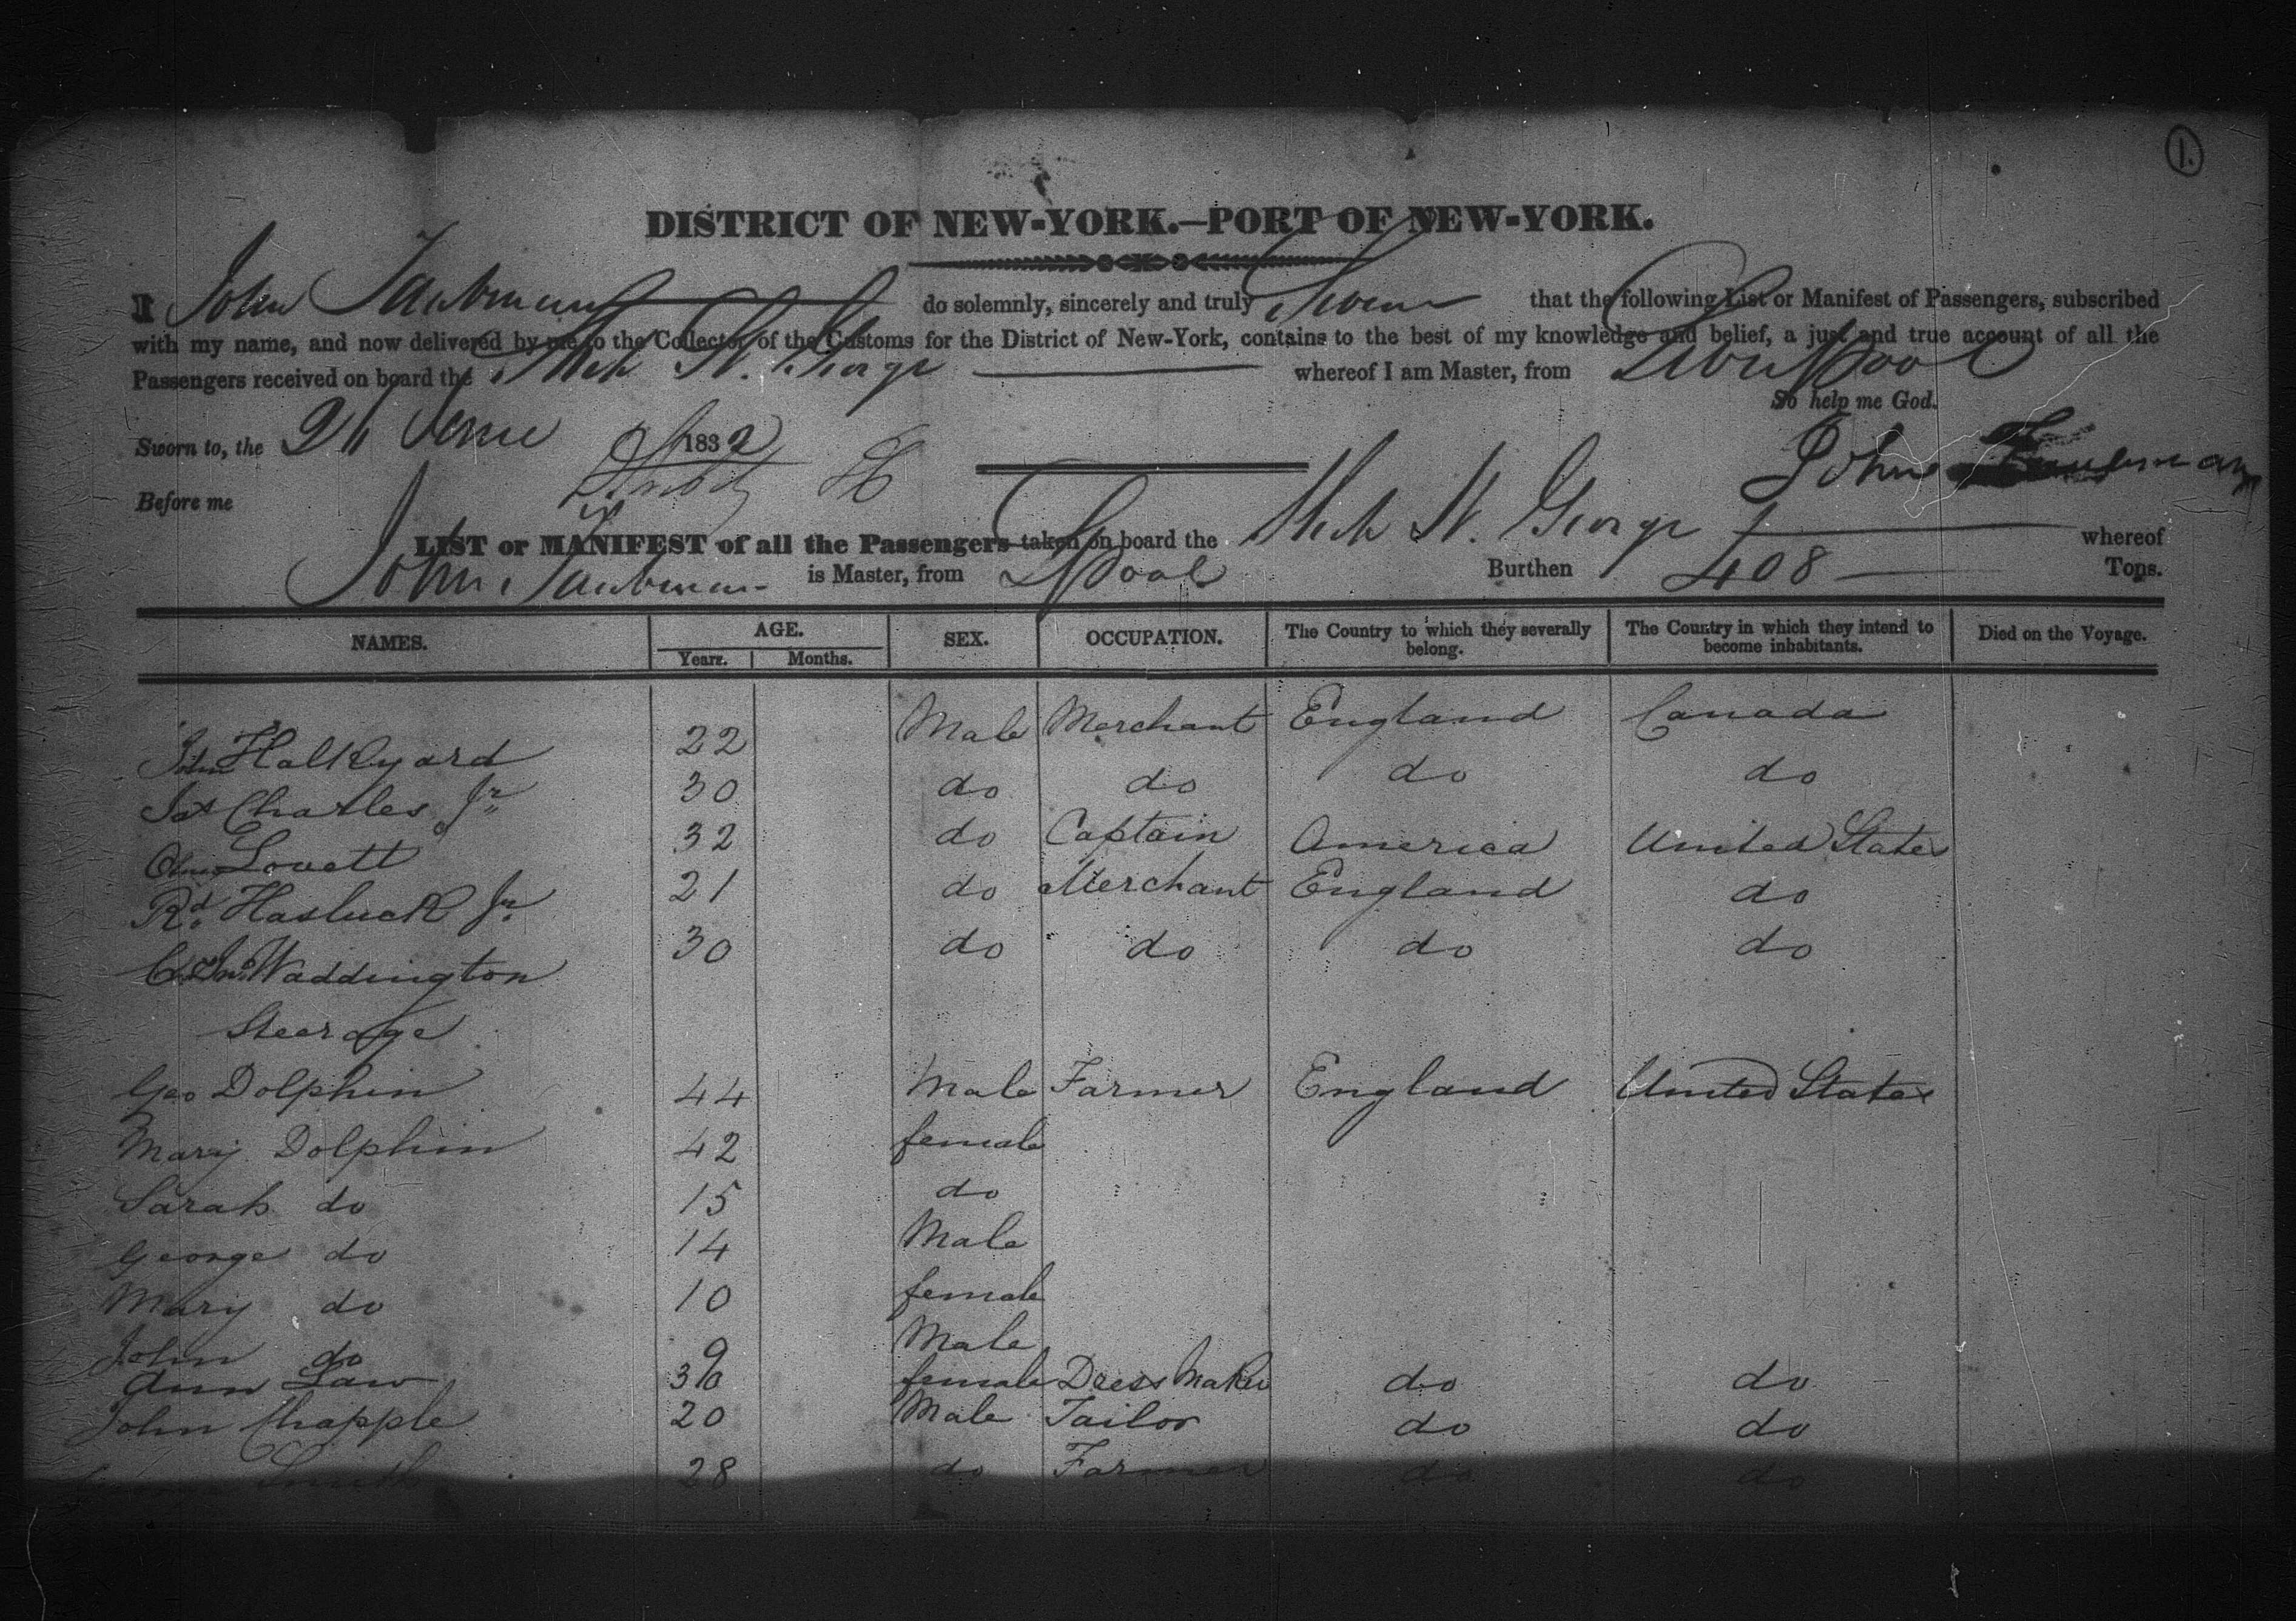 1.
DISTRICT OF NEW-YORK.—PORT OF NEW-YORK.
I John Taubman do solemnly, sincerely and truly Swear that the following List or Manifest of Passengers, subscribed
with my name, and now delivered by me to the Collector of the Customs for the District of New-York, contains to the best of my knowledge and belief, a just and true account of all the
Passengers received on board the Ship St. George whereof I am Master, from Liverpool
So help me God.
Sworn to, the 21 June 1832
John Taubman
Before me
LIST or MANIFEST of all the Passengers taken on board the Ship St. George whereof
John Taubman is Master, from LPool Burthen 408 Tons.
NAMES. AGE. Years. Months. SEX. OCCUPATION. The Country to which they severally belong. The Country in which they intend to become inhabitants. Died on the Voyage.
John Halkyard 22 Male Merchant England Canada
Jas Charles Jr 30 do do do do
Lovett 32 do Captain America United States
Rd. Hasluck Jr. 21 do Merchant England do
Waddington 30 do do do do
Steerage
Geo Dolphin 44 Male Farmer England United States
Mary Dolphin 42 female
Sarah do 15 do
George do 14 Male
Mary do 10 female
John do 9 Male
Ann Law 30 female Dress Maker do do
John Chapple 20 Male Tailor do do
Smith 28 do Farmer do do